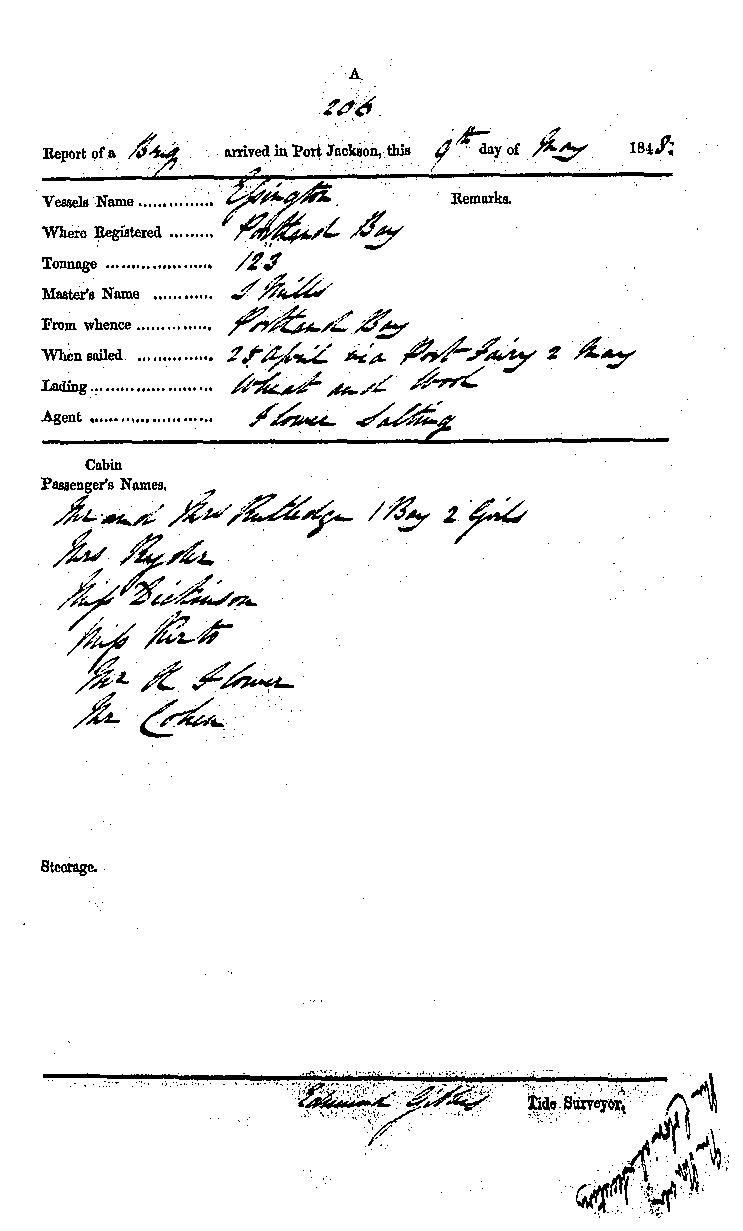 A
206
Report of a Brig arrived in Port Jackson, this 9th day of May 1848.
Vessels Name .............. Essington Remarks.
Where Registered ........ Portland Bay
Tonnage .................... 123
Master's Name ........... J Mills
From whence .............. Portland Bay
When sailed .............. 25 April via Port Fairy 2 May
Lading ...................... Wheat and Wool
Agent ....................... Flower Salting
Cabin
Passenger's Names.
Mr and Mrs Rutledge 1 Boy 2 Girls
Mrs Ryder
Miss Dickinson
Miss
Mr R Flower
Mr Cohen
Steerage.
Edmund Tide Surveyor.